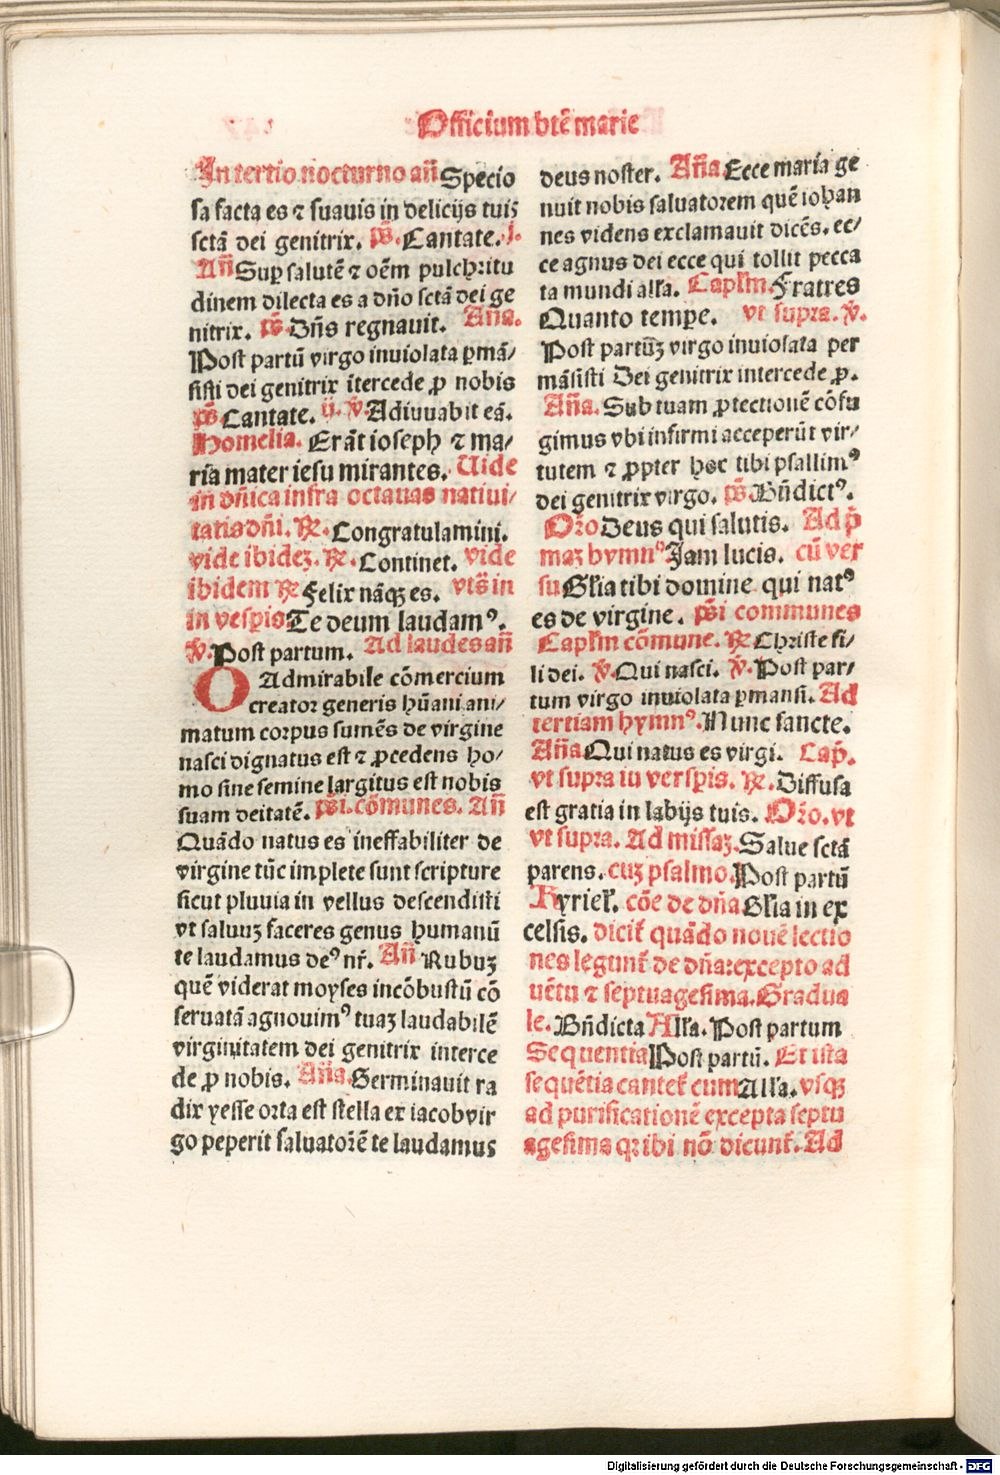 Officium btē marie
In tertio nocturno añ Specio
sa facta es ⁊ suauis in delicijs tuis
sctā dei genitrix. ps̄. Cantate. j.
Añ Sup̱ salutē ⁊ oēm pulchritu
dinem dilecta es a dño sctā dei ge
nitrix. ps̄. Dñs regnauit. Aña.
Post partū virgo inuiolata ꝑmā/
sisti dei genitrix ītercede ꝓ nobis
ps̄. Cantate. ij. ℣. Adiuuabit eā.
Homelia. Erāt ioseph ⁊ ma/
ria mater iesu mirantes. Uide
in dñica infra octauas natiui/
tatis dñi. ℞. Congratulamini.
vide ibidez. ℞. Continet. vide
ibidem ℞ Felix nāqꝫ es. vt s̄ in
in vesꝑis Te deum laudamꝰ.
℣. Post partum. Ad laudes añ
O Admirabile cōmercium
creator generis hūani ani/
matum corpus sumēs de virgine
nasci dignatus est ⁊ ꝓcedens ho/
mo sine semine largitus est nobis
suam deitatē. ps̄i. cōmunes. Añ
Quādo natus es ineffabiliter de
virgine tūc implete sunt scripture
sicut pluuia in vellus descendisti
vt saluuꝫ faceres genus humanū
te laudamus deꝰ nr̄. Añ Rubuꝫ
quē viderat moyses incōbustū cō
seruatā agnouimꝰ tuaꝫ laudabilē
virginitatem dei genitrix interce
de ꝓ nobis. Aña. Germinauit ra
dix yesse orta est stella ex iacob vir
go peperit saluatorē te laudamus
deus noster. Aña. Ecce maria ge
nuit nobis saluatorem quē iohan
nes videns exclamauit dicēs. ec/
ce agnus dei ecce qui tollit pecca
ta mundi alľa. Capľm. Fratres
Quanto tempe. vt supra. ℣.
Post partūꝫ virgo inuiolata per
māsisti Dei genitrix intercede ꝓ.
Aña. Sub tuam ꝓtectionē cōfu
gimus vbi infirmi acceperūt vir/
tutem ⁊ ꝓpter hoc tibi psallimꝰ
dei genitrix virgo. ps̄. Bñdictꝰ.
Oŕo Deus qui salutis. Ad p̄
maꝫ hymnꝰ Jam lucis. cū ver
su Gľia tibi domine qui natꝰ
es de virgine. ps̄i communes
Capľm cōmune. ℞ Christe fi/
li dei. ℣. Qui nasci. ℣. Post par/
tum virgo inuiolata ꝑmansi. Ad
tertiam hymnꝰ. Nunc sancte.
Aña Qui natus es virgi. Cap̄.
vt supra iu verspis. ℞. Diffusa
est gratia in labijs tuis. Oŕo. vt
vt supra. Ad missaꝫ. Salue sctā
parens. cuꝫ psalmo. Post partū
Kyrieľ. cōe de dña Gľia in ex
celsis. dicit̄ quādo nouē lectio
nes legunt̄ de dña: excepto ad
uētu ⁊ septuagesima. Gradua
le. Bñdicta Alľa. Post partum
Sequentia Post partū. Et ista
sequētia cantet̄ cum Alľa. vsqꝫ
ad purificationē excepta septu
agesima qꝛ ibi nō dicunt̄. Ad
Digitalisierung gefördert durch die Deutsche Forschungsgemeinschaft - DFG